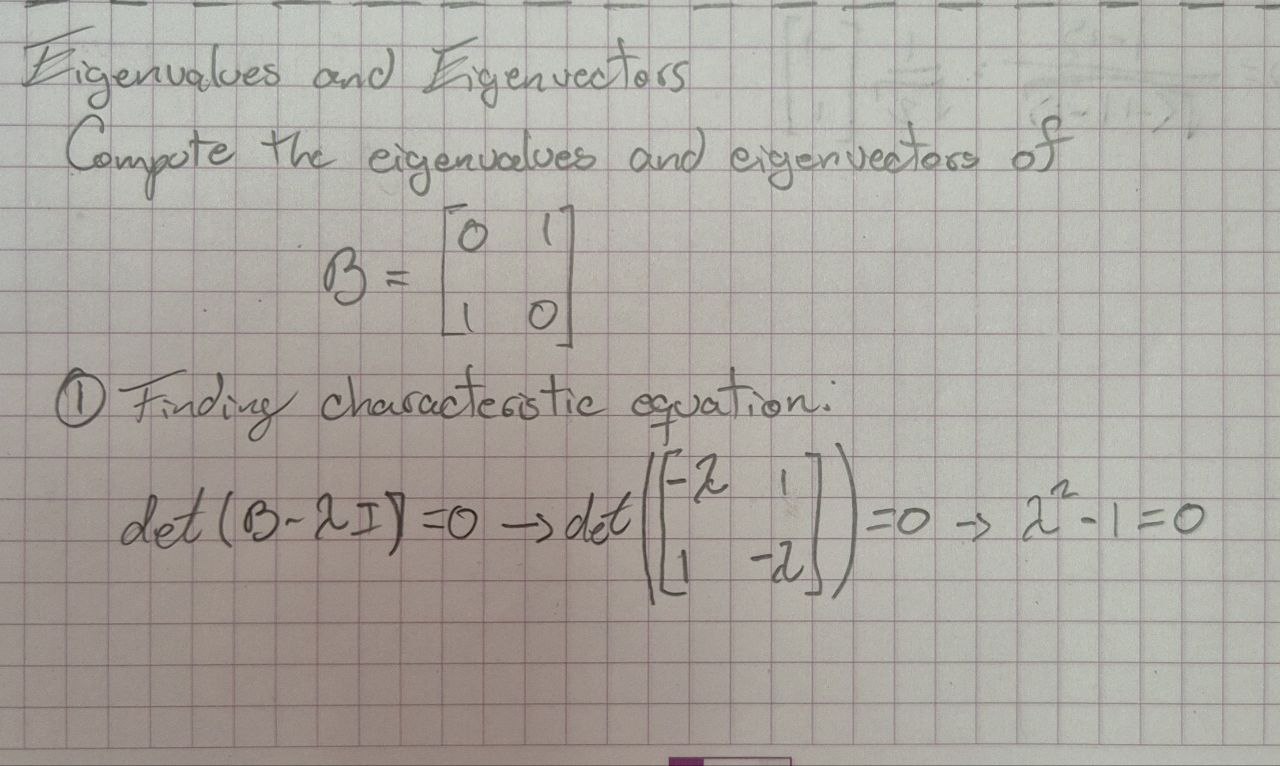 Eigenvalues and Eigenvectors
Compute the eigenvalues and eigenvectors of
B = [0 1
1 0]
① Finding characteristic equation:
det(B-λI)=0 → det([-λ 1
1 -λ])=0 → λ²-1=0